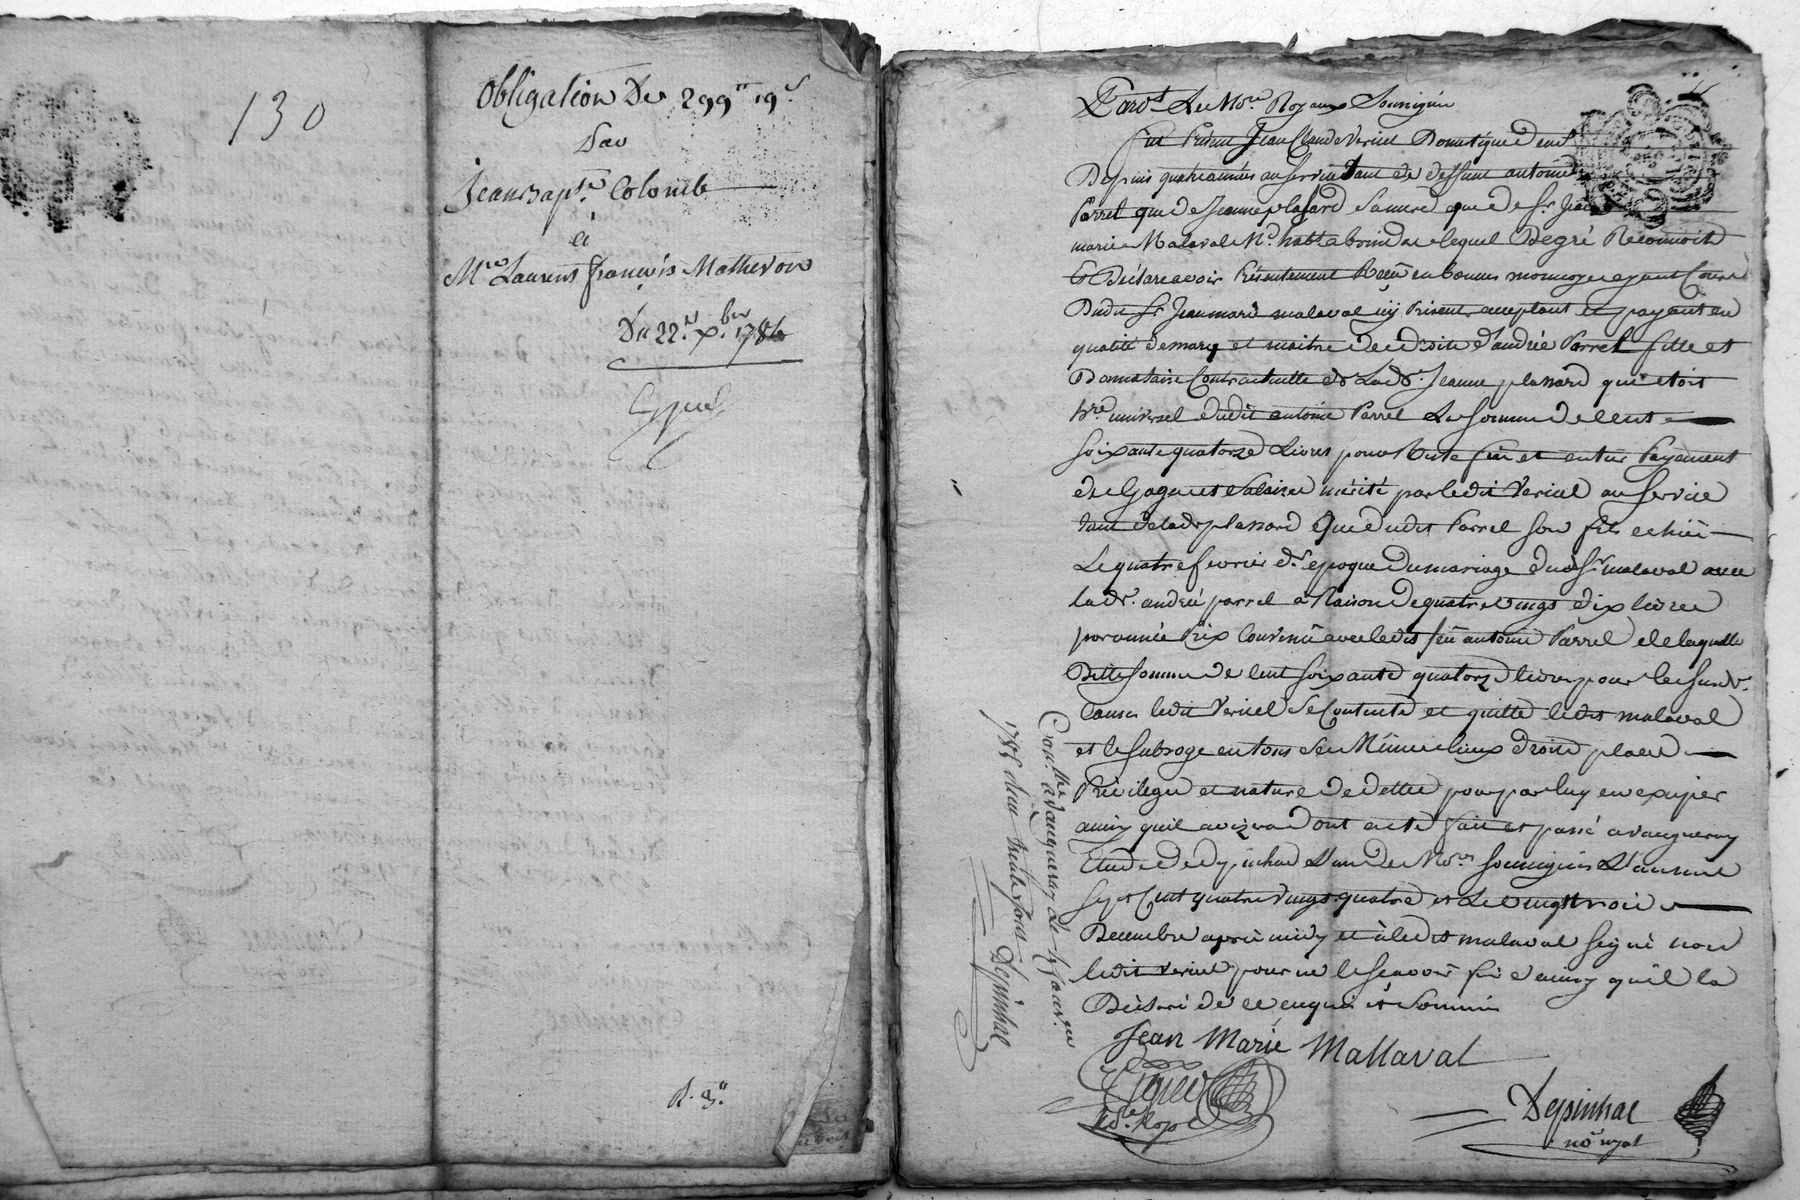 130
Obligation De 299ᶫᶫ 19ˢ
Par
Jean Baptᵗᵉ Colomb
à
Mʳᵉ Laurent françois Matheron
Du 22ᵉ Xbre 1784
R. 3ᶫᶫ
Pardᵗ Les Noʳᵉˢ Royaux Soussignés
fut Présent Jean Claude Veriel Domestique
Depuis quatre années au service tant de deffunt antoine
Parrel que de Jeanne plassard que de Sʳ Jean
marie Malaval Mᵈ habᵗ lequel De gré Reconnoit
Et Déclare avoir Présentement Reçu en bonnes monnoyes ayant Cours
Dudit Sʳ Jean marie malaval icy Présent acceptant et payant en
qualité de mary et maitre des droits d'andrée Parrel fille et
Donnataire Contractuelle de Ladᵉ Jeanne plassard qui etoit
hʳᵉ universel dudit antoine Parrel La somme de Cent
soixante quatorze Livres pour Reste fin et entier Payement
de Gages et salaires mérité par ledit Veriel au service
tant de lade plassard que dudit Parrel son fils echus
Le quatre fevrier dʳ epoque du mariage dud Sʳ malaval avec
lade andrée parrel à Raison de quatre vingt dix livres
par année Prix Convenu avec ledit feu antoine Parrel de laquelle
Ditte somme de Cent soixante quatorze livres pour les susdᵉˢ
Causes ledit Veriel se Contente et quitte ledit malaval
et le subroge en tous ses Mêmes lieux droits place
Privilege et nature de dettes pour par luy en exiger
ainsy quil avizera Dont acte fait et passé a vaugneray
Etude de depinhac L'un des Noʳᵉˢ soussignés L'an mil
sept Cent quatre vingt quatre et Le vingt trois
Decembre après midy et a ledit malaval signé non
ledit Veriel pour ne le scavoir faire ainsy quil la
Déclaré de ce enquis et sommé
Jean Marie Mallaval
Depinhac
noʳᵉ royal
Conᵗˡᵉ à Vaugneray Le 4 Janᵛⁱᵉʳ
1785 reçu trente sols Depinhac